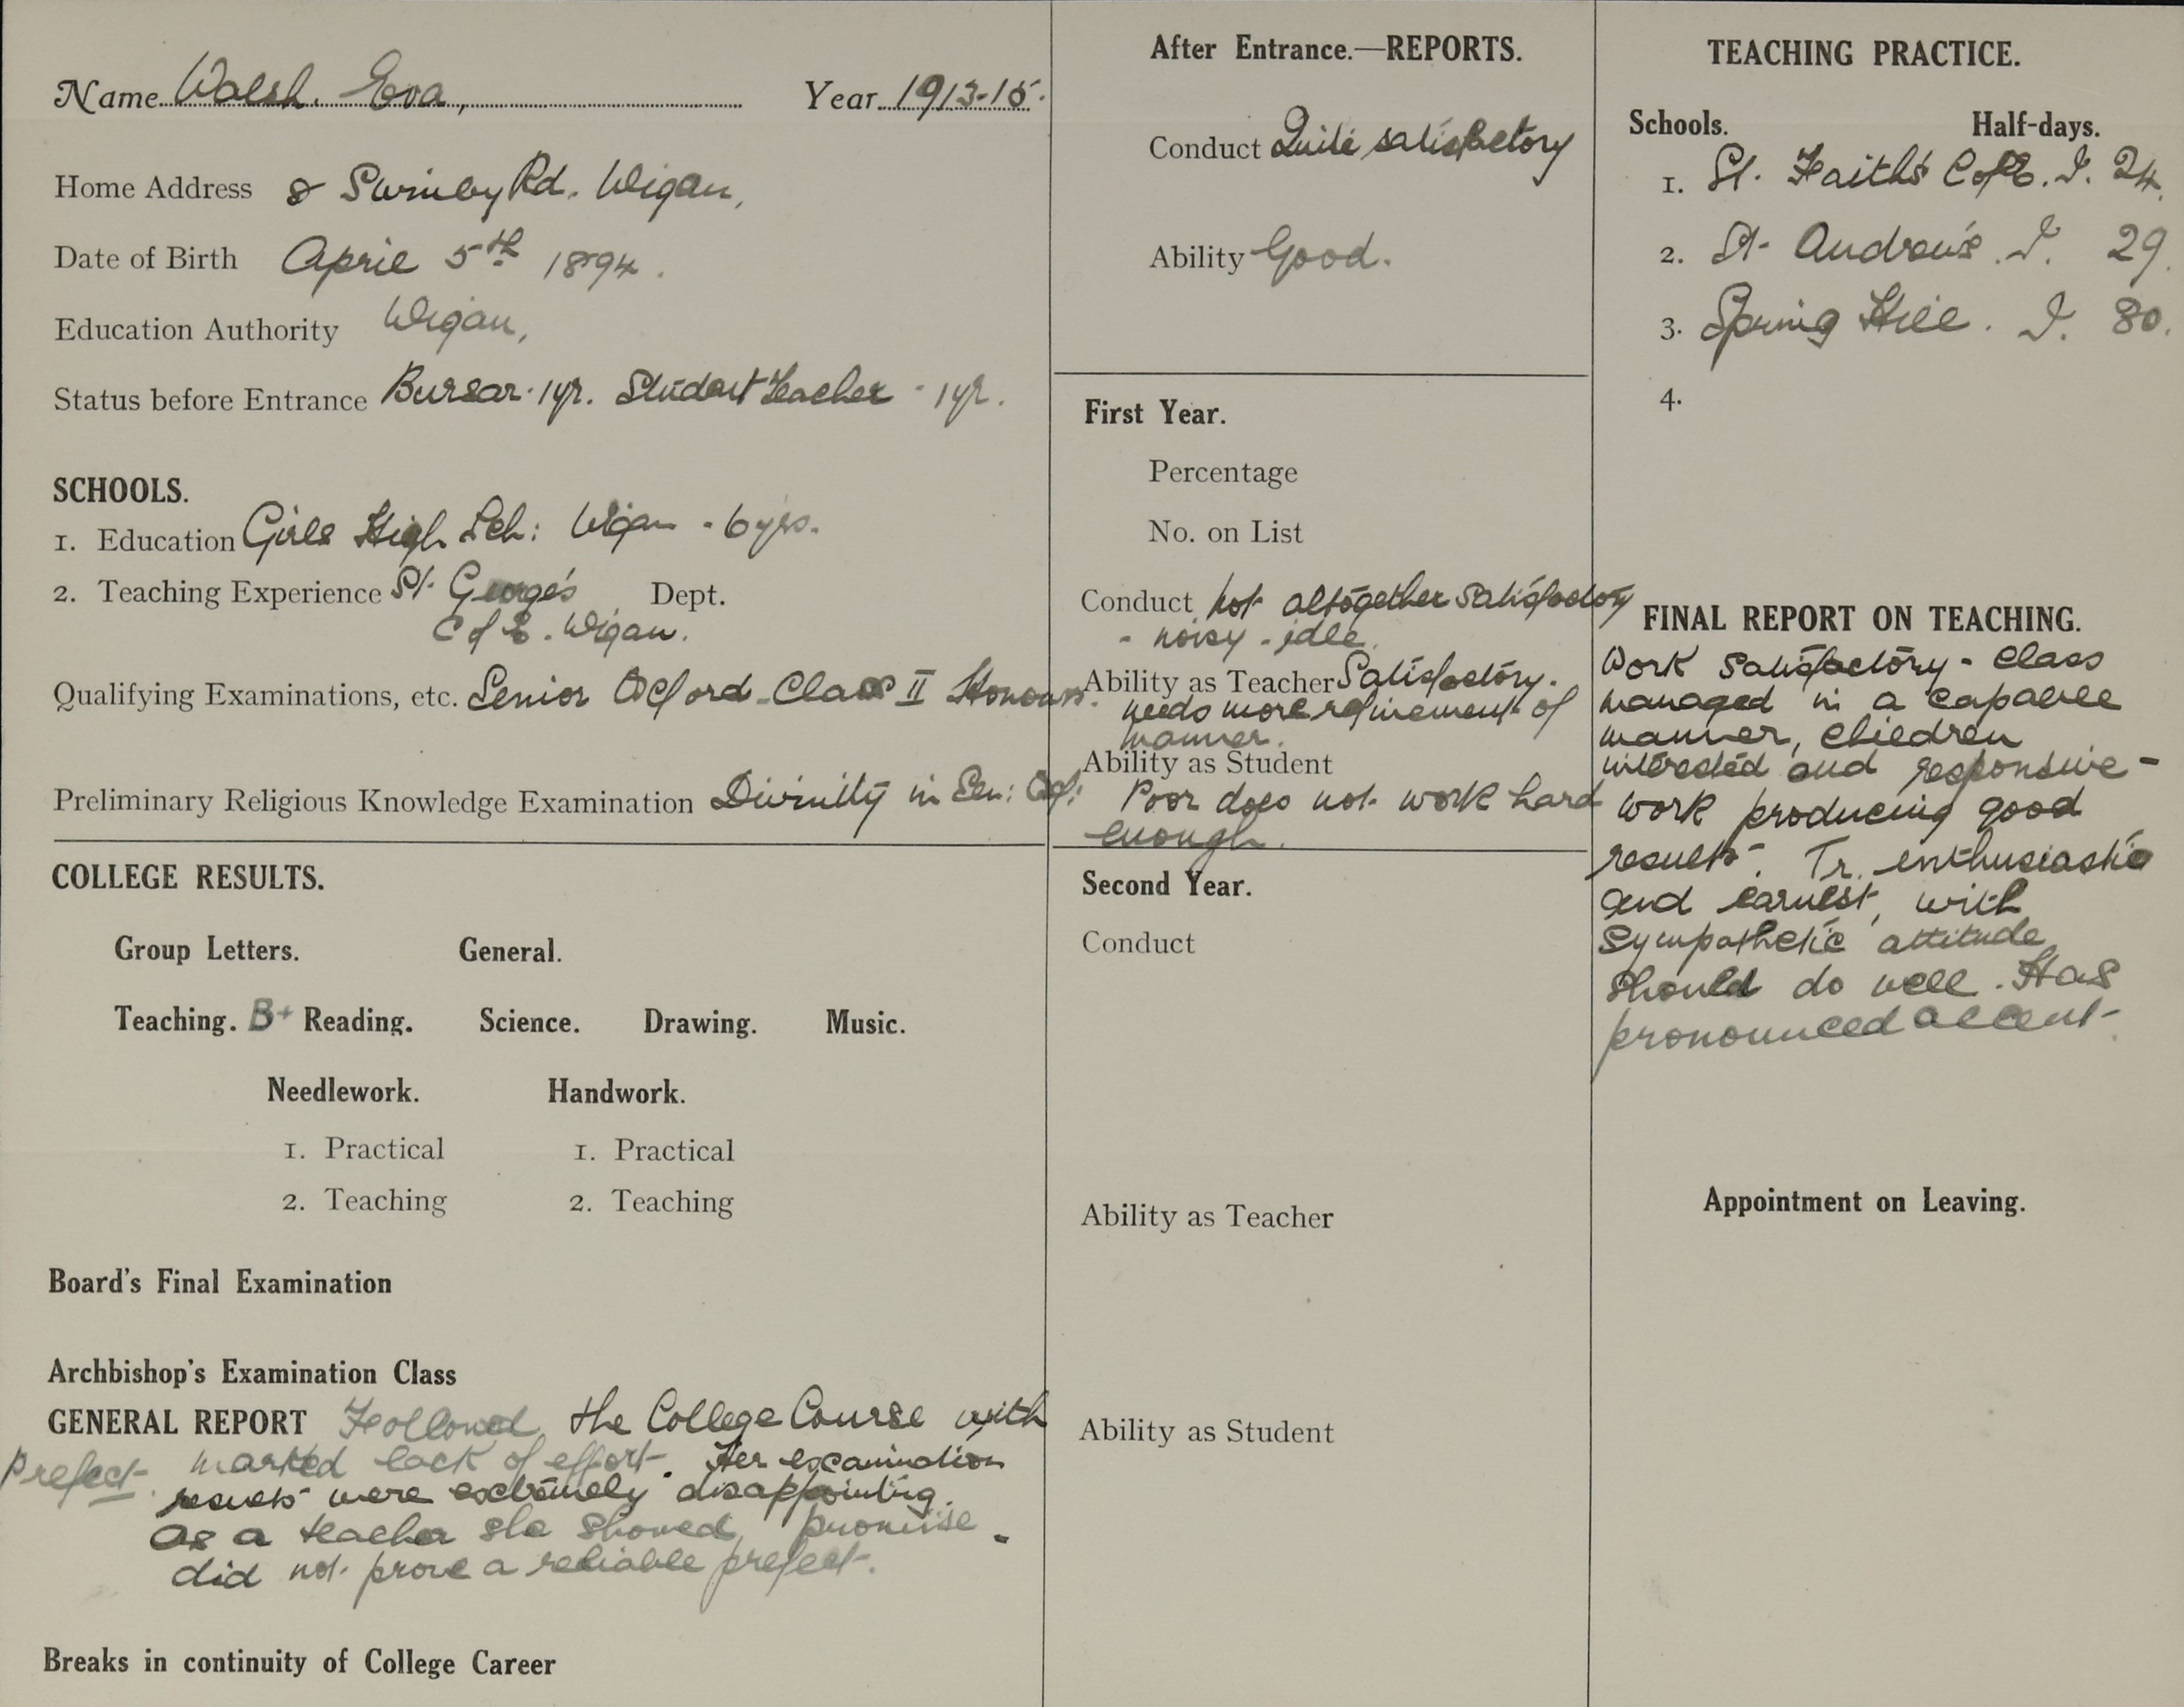 Name Walsh. Eva, Year 1913-15.
Home Address 8 Swinby Rd. Wigan,
Date of Birth April 5th 1894.
Education Authority Wigan,
Status before Entrance Bursar · 1yr. Student Teacher - 1yr.
SCHOOLS.
1. Education Girls High Sch: Wigan - 6 yrs.
2. Teaching Experience St. George's Dept.
C of E. Wigan.
Qualifying Examinations, etc. Senior Oxford - Class II Honours.
Preliminary Religious Knowledge Examination Divinity in Sen: Oxf:
COLLEGE RESULTS.
Group Letters. General.
Teaching. B+ Reading. Science. Drawing. Music.
Needlework. Handwork.
1. Practical 1. Practical
2. Teaching 2. Teaching
Board's Final Examination
Archbishop's Examination Class
GENERAL REPORT Followed the College Course with
Prefect. marked lack of effort. Her examination
results were extremely disappointing.
As a teacher she showed promise -
did not prove a reliable prefect.
Breaks in continuity of College Career
After Entrance.—REPORTS.
Conduct Quite satisfactory
Ability Good.
First Year.
Percentage
No. on List
Conduct not altogether satisfactory
- noisy - idle.
Ability as Teacher Satisfactory.
needs more refinement of
manner.
Ability as Student
Poor does not work hard
enough.
Second Year.
Conduct
Ability as Teacher
Ability as Student
TEACHING PRACTICE.
Schools. Half-days.
1. St. Faith's C of E. I. 24.
2. St. Andrew's. I. 29.
3. Spring Hill. I. 30.
4.
FINAL REPORT ON TEACHING.
Work satisfactory - class
managed in a capable
manner, children
interested and responsive -
work producing good
results. Tr. enthusiastic
and earnest, with
sympathetic attitude
should do well. Has
pronounced accent.
Appointment on Leaving.